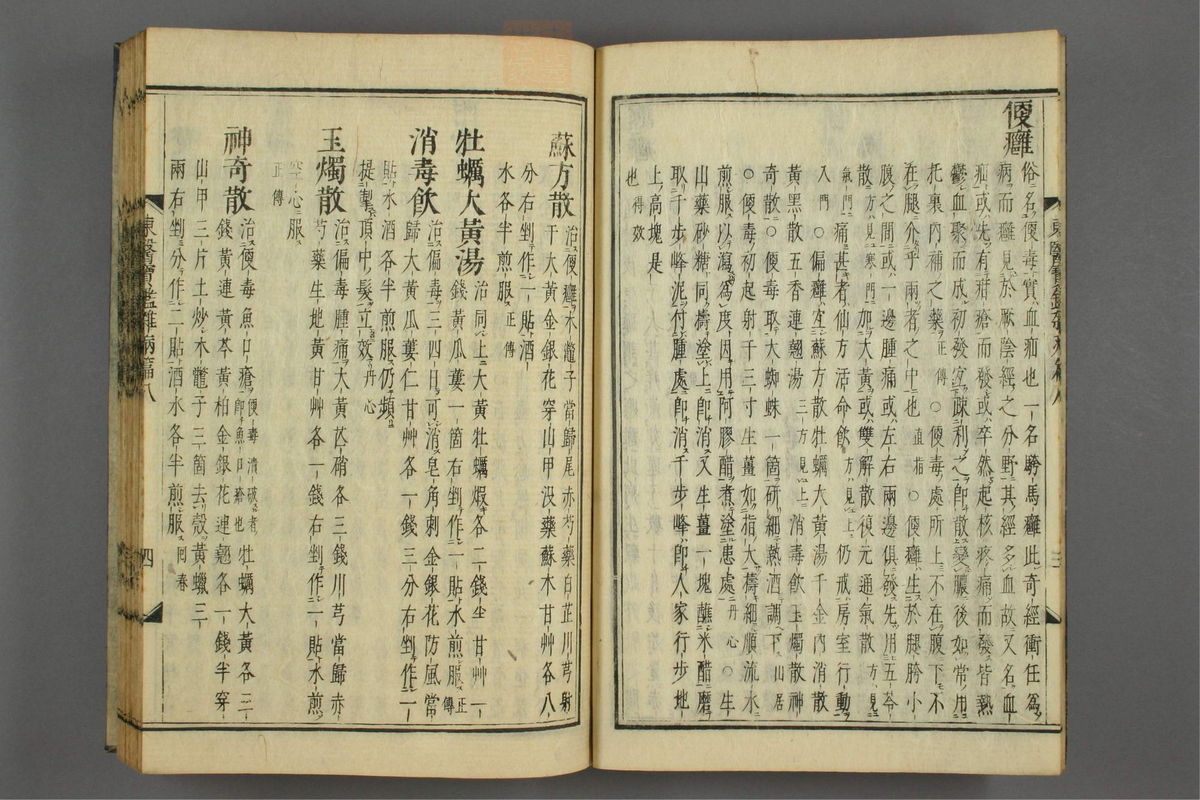 便癰
俗名便毒實血疝也一名騎馬癰此奇經衝任爲
病而癰見於厥陰經之分野其經多血故又名血
疝或先有疳瘡而發或卒然起核疼痛而發皆熱
鬱血聚而成初發宜疎利之卽散變膿後如常用
托裏內補之藥正傳○便毒處所上不在腹下不
在腿介乎兩者之中也直指○便癰生於腿胯小
腹之間或一邊腫痛或左右兩邊俱發先用五苓
散方見寒門加大黃或雙解散復元通氣散方見
氣門痛甚者仙方活命飮方見上仍戒房室行動
入門○偏癰宜蘇方散牡蠣大黃湯千金內消散
黃黑散五香連翹湯三方見上消毒飮玉燭散神
奇散○便毒取大蜘蛛一箇硏細熱酒調下山居
○便毒初起射干三寸生薑如指大擣細順流水
煎服以瀉爲度因用阿膠醋煮塗患處丹心○生
山藥砂糖同擣塗上卽消又生薑一塊蘸米醋磨
取千步峰泥付腫處卽消千步峰卽人家行步地
上高塊是
也得效
東醫寶鑑雜病篇八
三
蘇方散治便癰木鼈子當歸尾赤芍藥白芷川芎射
干大黃金銀花穿山甲沒藥蘇木甘艸各八
分右剉作一貼酒
水各半煎服正傳
牡蠣大黃湯治同上大黃牡蠣煆各二錢半甘艸一
錢黃瓜蔞一箇右剉作一貼水煎服正傳
消毒飮治偏毒三四日可消皂角刺金銀花防風當
歸大黃瓜蔞仁甘艸各一錢三分右剉作一
貼水酒各半煎服仍頻
提掣頂中髮立效丹心
玉燭散治偏毒腫痛大黃芒硝各三錢川芎當歸赤
芍藥生地黃甘艸各一錢右剉作一貼水煎
空心服
正傳
神奇散治便毒魚口瘡便毒潰破者卽魚口瘡也牡蠣大黃各二
錢黃連黃芩黃柏金銀花連翹各一錢半穿
山甲三片土炒木鼈子三箇去殼黃蠟三
兩右剉分作二貼酒水各半煎服回春
東醫寶鑑雜病篇八
四